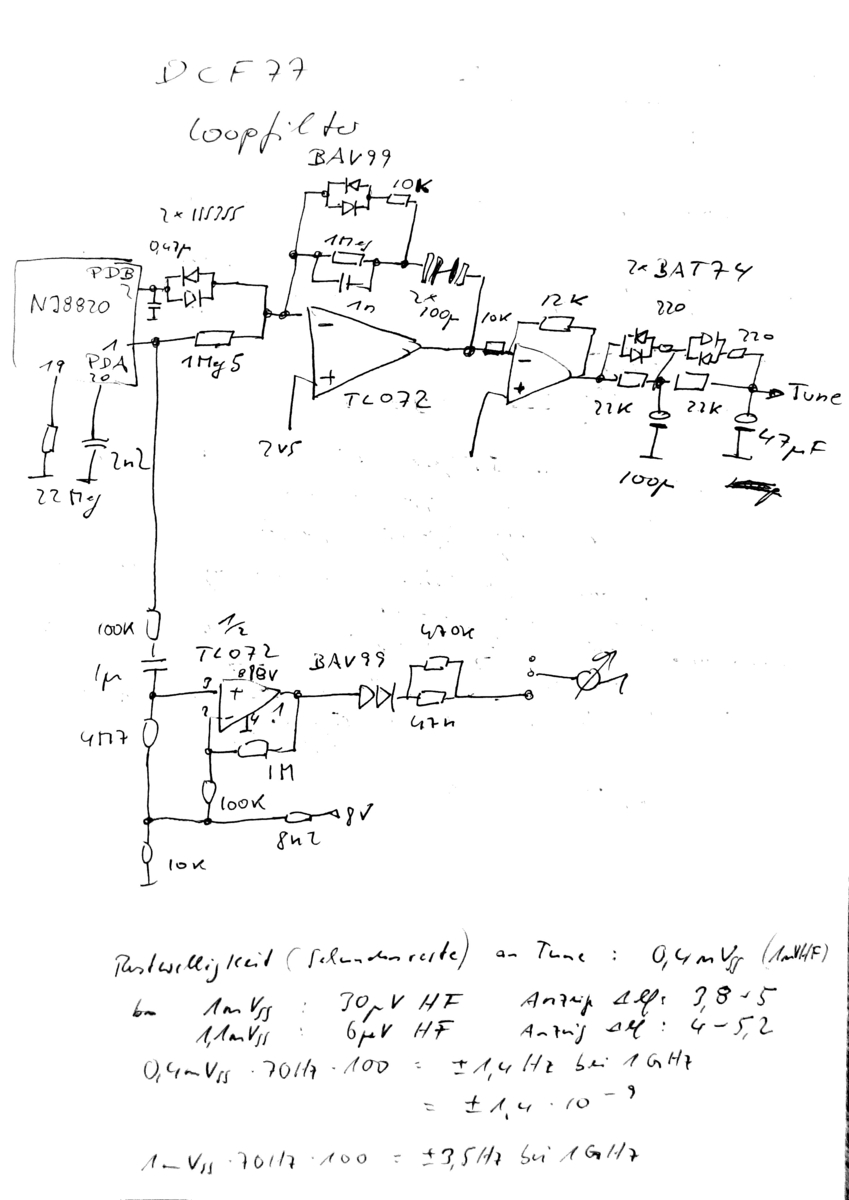 DCF77
Loopfilter
BAV99
10K
2 x 1SS355
0,47µ
1Meg
1n
2x
100µ
PDB
2
NJ8820
1
PDA
19
20
1Meg5
22Meg
2n2
2V5
-
+
TL072
10K
12K
-
+
2xBAT74
220
220
22K
22K
Tune
100µ
47µF
100K
1µ
4M7
1/2
TL072
8 8V
3
2
+
-
4
1
1M
100K
BAV99
470K
47n
8V
8n2
10K
Restwelligkeit (Sekundenreste) an Tune : 0,4mVss (1mVHF)
1mVss : 30µV HF Anzeige ΔM: 3,8-5
1,1mVss : 6µV HF Anzeig ΔM: 4-5,2
0,4mVss · 70Hz · 100 = ±1,4Hz bei 1GHz
= ±1,4 · 10⁻⁹
1mVss · 70Hz · 100 = ±3,5Hz bei 1GHz